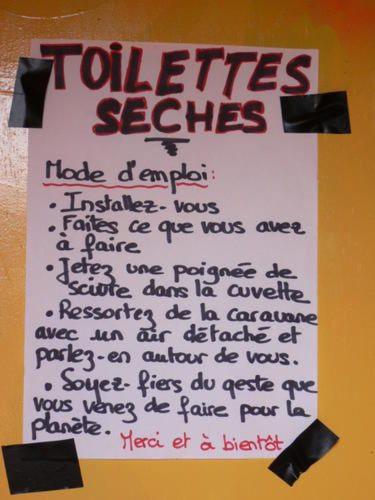 TOILETTES
SECHES
Mode d'emploi:
• Installez-vous
• Faites ce que vous avez
à faire
• Jetez une poignée de
sciure dans la cuvette
• Ressortez de la caravane
avec un air détaché et
parlez-en autour de vous.
• Soyez-fiers du geste que
vous venez de faire pour la
planète.
Merci et à bientôt